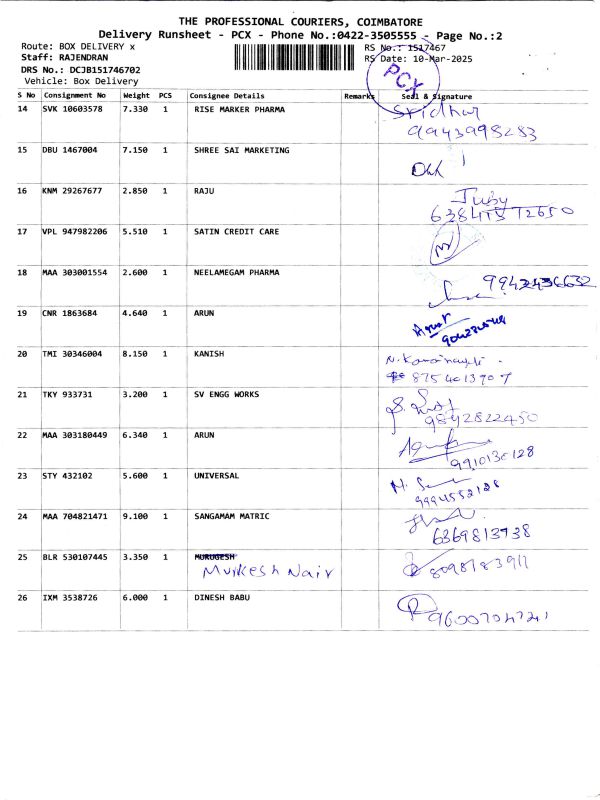 THE PROFESSIONAL COURIERS, COIMBATORE
Delivery Runsheet - PCX - Phone No.:0422-3505555 - Page No.:2
Route: BOX DELIVERY x
RS No.: 1517467
Staff: RAJENDRAN
RS Date: 10-Mar-2025
DRS No.: DCJB151746702
Vehicle: Box Delivery
PCX
S No Consignment No Weight PCS Consignee Details Remarks Seal & Signature
14 SVK 10603578 7.330 1 RISE MARKER PHARMA Sridhar
9943998283
15 DBU 1467004 7.150 1 SHREE SAI MARKETING
16 KNM 29267677 2.850 1 RAJU Juby
17 VPL 947982206 5.510 1 SATIN CREDIT CARE
18 MAA 303001554 2.600 1 NEELAMEGAM PHARMA
19 CNR 1863684 4.640 1 ARUN
20 TMI 30346004 8.150 1 KANISH
8754013707
21 TKY 933731 3.200 1 SV ENGG WORKS
9842822450
22 MAA 303180449 6.340 1 ARUN
9910130128
23 STY 432102 5.600 1 UNIVERSAL
9994552128
24 MAA 704821471 9.100 1 SANGAMAM MATRIC
6369813938
25 BLR 530107445 3.350 1 MURUGESH
Murkesh Nair
8098183911
26 IXM 3538726 6.000 1 DINESH BABU
96007047241